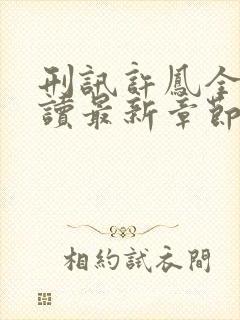 刑訊許鳳全
讀最新章節
相約試衣間